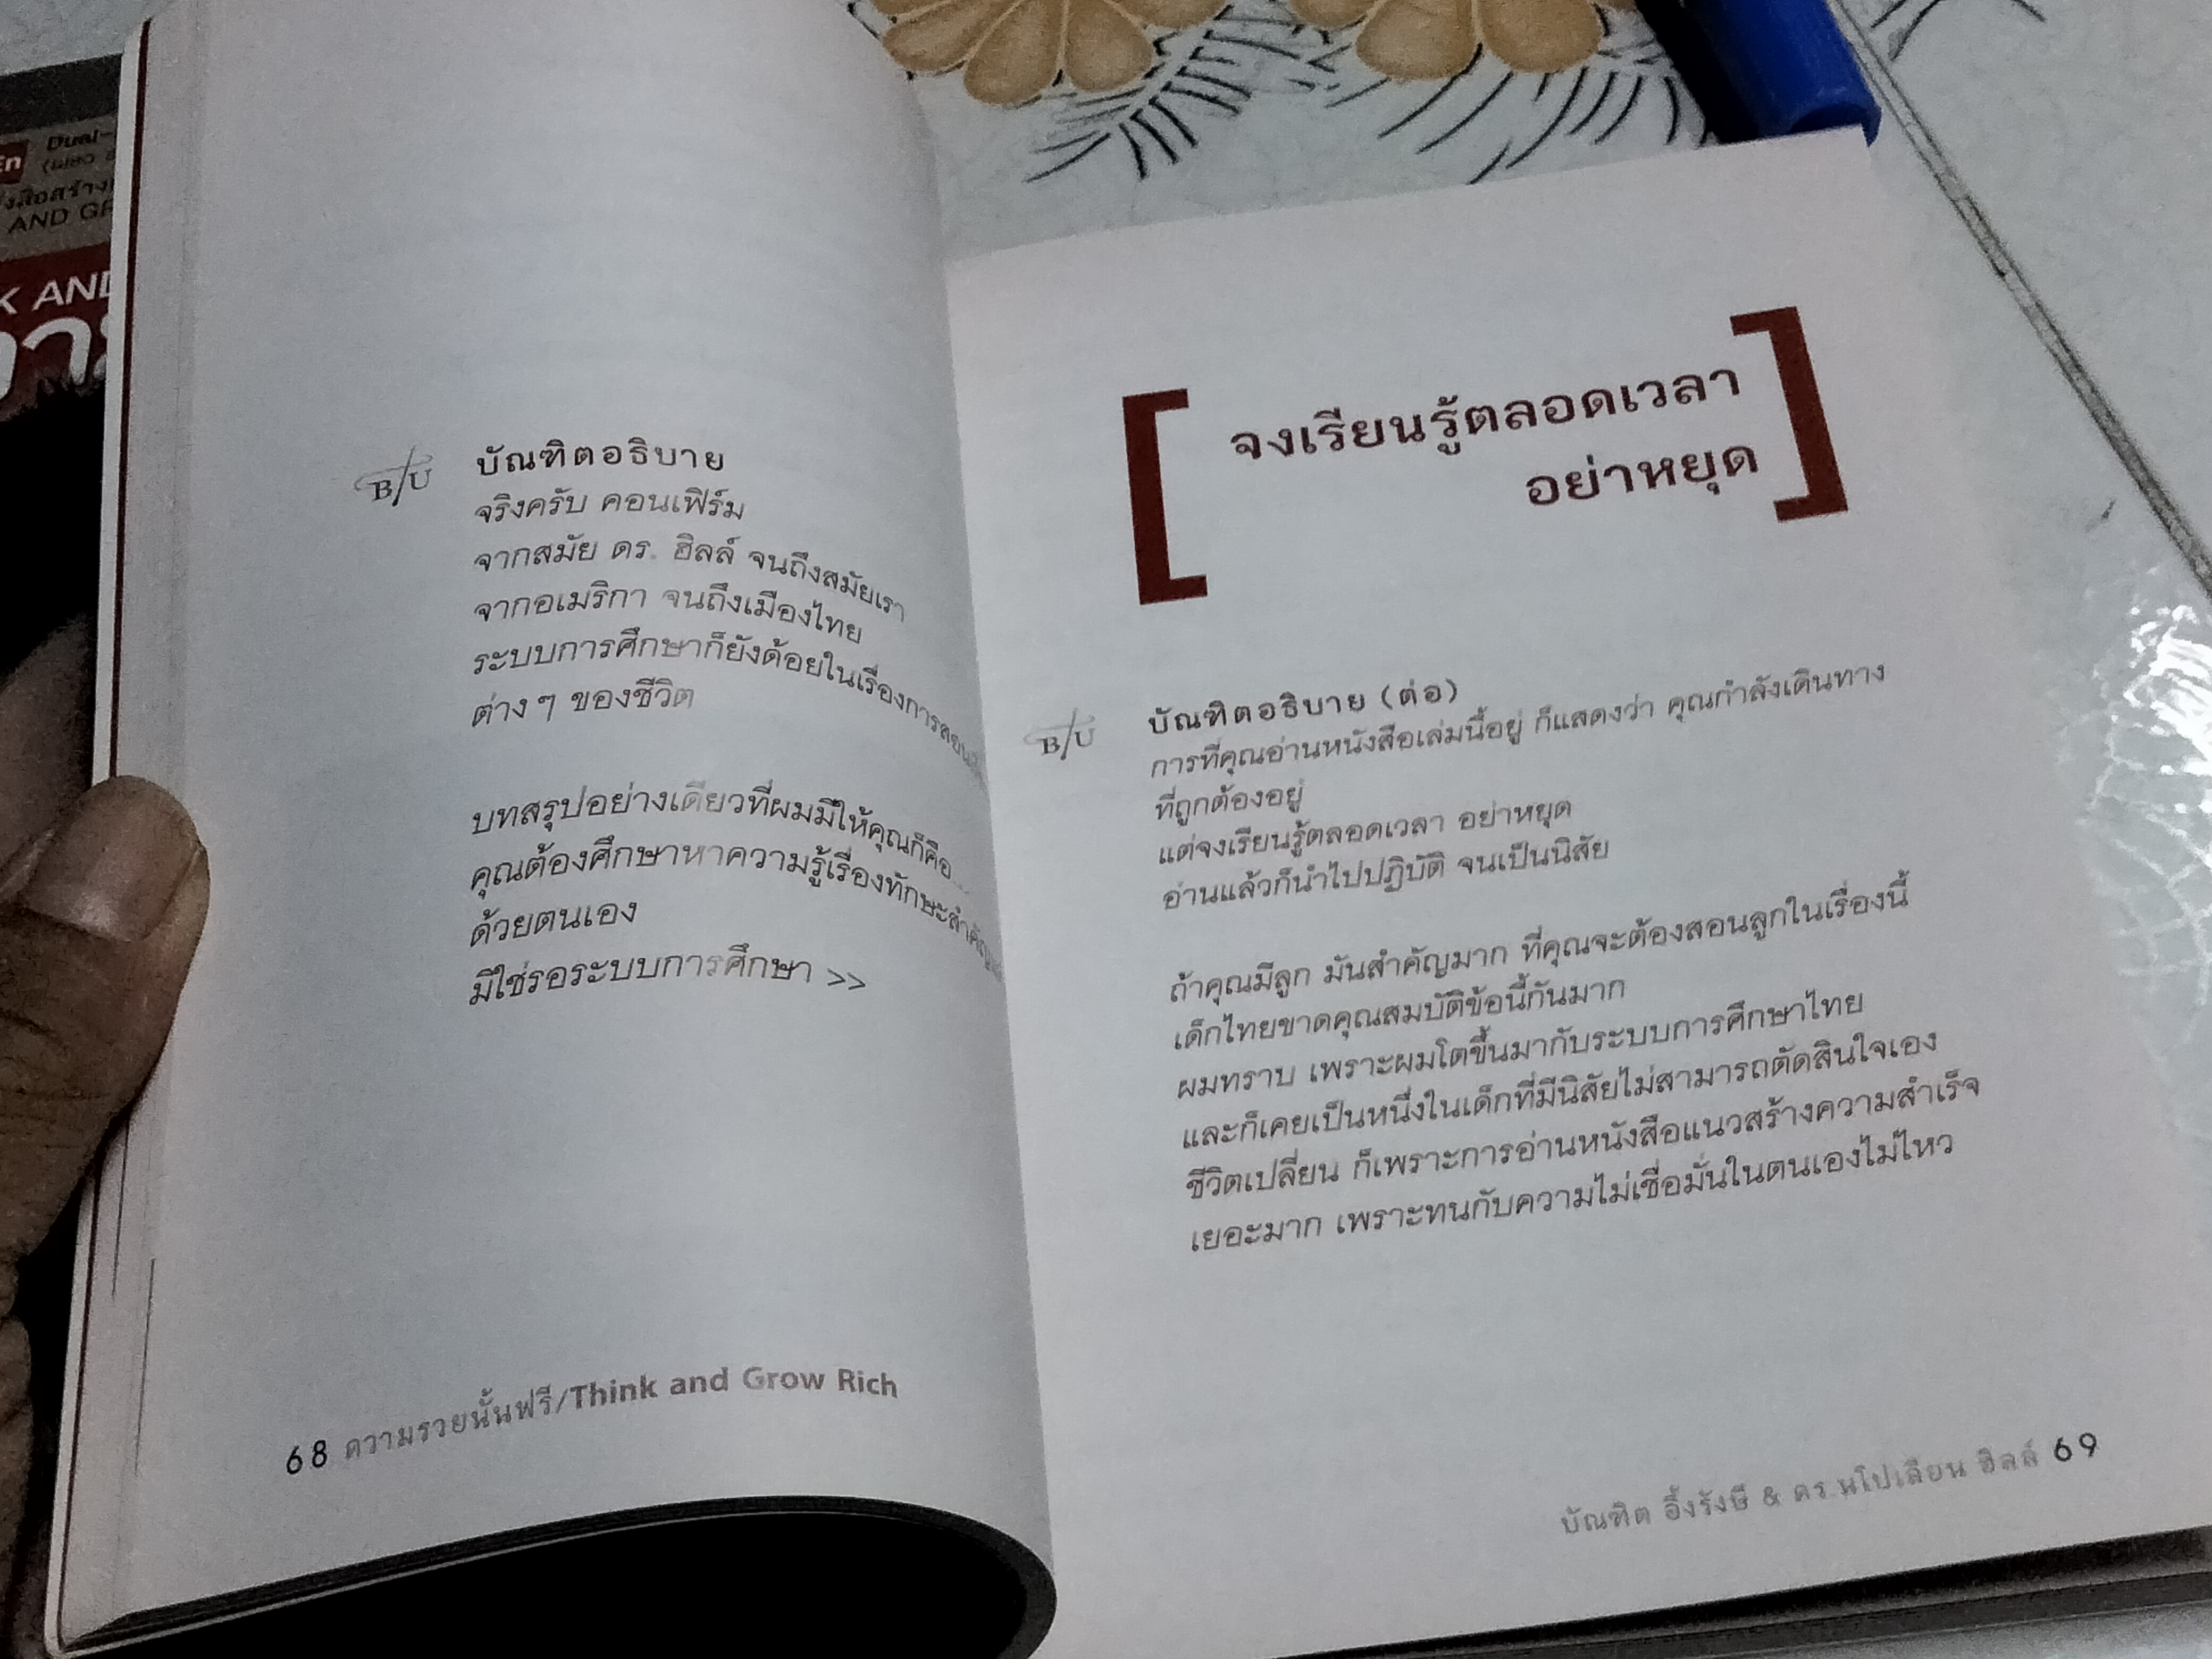 En
Dual-
AND GR
K AND
B/U
บัณฑิตอธิบาย
จริงครับ คอนเฟิร์ม
จากสมัย ดร. ฮิลล์ จนถึงสมัยเรา
จากอเมริกา จนถึงเมืองไทย
ระบบการศึกษาก็ยังด้อยในเรื่องการสอน
ต่างๆ ของชีวิต
บทสรุปอย่างเดียวที่ผมมีให้คุณก็คือ...
คุณต้องศึกษาหาความรู้เรื่องทักษะสำคัญ
ด้วยตนเอง
มิใช่รอระบบการศึกษา >>
68 ความรวยนั้นฟรี/Think and Grow Rich
[จงเรียนรู้ตลอดเวลา
อย่าหยุด]
B/U
บัณฑิตอธิบาย (ต่อ)
การที่คุณอ่านหนังสือเล่มนี้อยู่ ก็แสดงว่า คุณกำลังเดินทาง
ที่ถูกต้องอยู่
แต่จงเรียนรู้ตลอดเวลา อย่าหยุด
อ่านแล้วก็นำไปปฏิบัติ จนเป็นนิสัย
ถ้าคุณมีลูก มันสำคัญมาก ที่คุณจะต้องสอนลูกในเรื่องนี้
เด็กไทยขาดคุณสมบัติข้อนี้กันมาก
ผมทราบ เพราะผมโตขึ้นมากับระบบการศึกษาไทย
และก็เคยเป็นหนึ่งในเด็กที่มีนิสัยไม่สามารถตัดสินใจเอง
ชีวิตเปลี่ยน ก็เพราะการอ่านหนังสือแนวสร้างความสำเร็จ
เยอะมาก เพราะทนกับความไม่เชื่อมั่นในตนเองไม่ไหว
บัณฑิต อึ้งรังษี & ดร.นโปเลียน ฮิลล์ 69